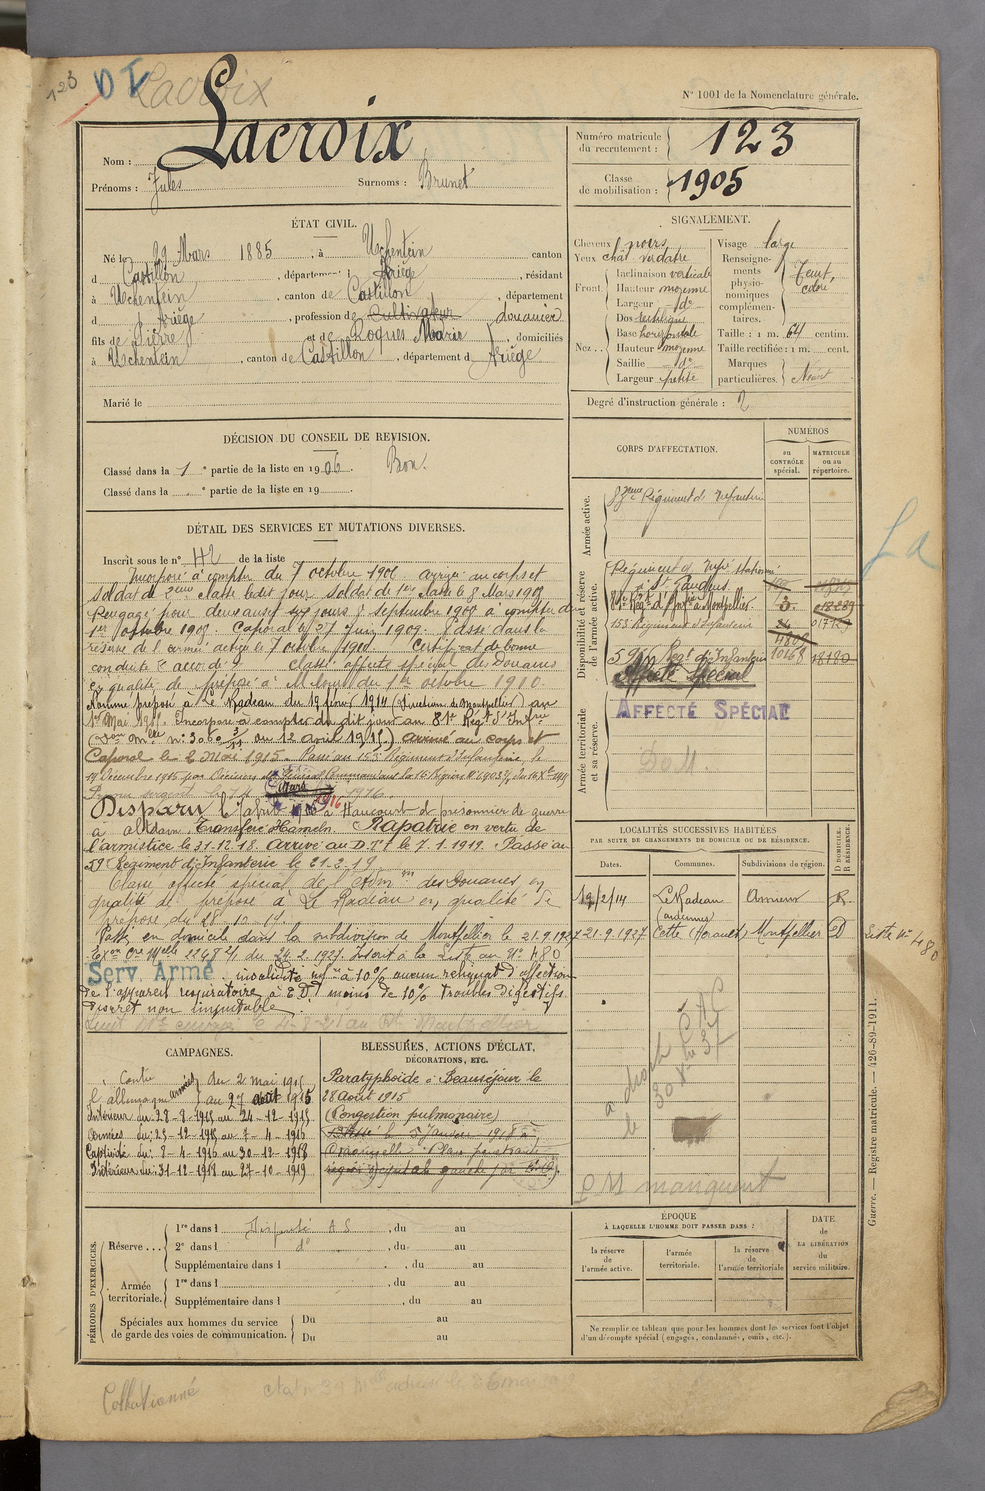 123 DI Lacroix
N° 1001 de la Nomenclature générale.
Nom : Lacroix
Prénoms : Jules Surnoms : Brunet
Numéro matricule du recrutement : 123
Classe de mobilisation : 1905
ÉTAT CIVIL.
Né le 29 Mars 1885, à Uchentein canton
d Castillon, département d Ariège, résidant
à Uchentein, canton de Castillon, département
d Ariège, profession de Cultivateur douanier
fils de Pierre et de Roques Marie domiciliés
à Uchentein, canton de Castillon, département d Ariège
Marié le
SIGNALEMENT.
Cheveux noirs
Yeux chat verdatre
Front. Inclinaison verticale
Hauteur moyenne
Largeur d°
Nez.. Dos rectiligne
Base horizontale
Hauteur moyenne
Saillie d°
Largeur petite
Visage large
Renseignements physionomiques complémentaires. Teint coloré
Taille : 1 m. 64 centim.
Taille rectifiée : 1 m. cent.
Marques particulières. Néant
Degré d'instruction générale : 2
DÉCISION DU CONSEIL DE REVISION.
Classé dans la 1 e partie de la liste en 1906. Bon.
Classé dans la e partie de la liste en 19
CORPS D'AFFECTATION.
NUMÉROS
au CONTRÔLE spécial.
MATRICULE ou au répertoire.
Armée active.
Régiment d'Infanterie
Disponibilité et réserve de l'armée active.
Régiment d' Infie stationné
à St Gaudens
81e Régt d'Infie à Montpellier
153 Régiment d'Infanterie
59e Régt d'Infanterie
Affecté Spécial
AFFECTÉ SPÉCIAL
Armée territoriale et sa réserve.
DoM.
DÉTAIL DES SERVICES ET MUTATIONS DIVERSES.
Inscrit sous le n° 42 de la liste
Incorporé à compter du 7 octobre 1906 arrivé au corps et
soldat de 2eme classe ledit jour Soldat de 1ere classe le 8 Mars 1908
Rengagé pour deux ans et jours 8 septembre 1908 à compter du
1er octobre 1908. Caporal le 27 Juin 1909. Passé dans la
réserve de l'armée active le 7 octobre 19 Certificat de bonne
conduite "accordé". Classé affecté spécial des Douanes
en qualité de préposé à du 1er octobre 1910.
Nommé préposé à Le Radeau du 19 février 1914 (Direction de Montpellier) au
1er Mai 1915. Incorporé à compter du dit jour au 81e Régt d'Infrie
au 12 Avril 1915.) arrivé au corps et
Caporal le 2 Mai 1915. Passé au 153 Régiment d'Infanterie, le
Décembre 1915 par Décision du Général Commandant la 16e Région
Mars 1916.
Disparu le 7 abril 1916 à Haucourt et prisonnier de guerre
à Transféré Hameln. Rapatrié en vertu de
l'armistice le 31-12-18. Arrivé au D. I le 7.1.1919. Passé au
59 Régiment d'Infanterie le 21.2.19.
Classé affecté spécial de l'Admon des Douanes en
qualité de préposé à Le Radeau en qualité de
préposé du
Passé en domicile dans la subdivision de Montpellier le 21.9.1927
du 24.2.1927. Inscrit à la Liste au N° 480
Serv. Armé invalidité infre à 10% aucun reliquat d'affection
de l'appareil respiratoire à E.D moins de 10% troubles digestifs
Discret non imputable
LOCALITÉS SUCCESSIVES HABITÉES
PAR SUITE DE CHANGEMENTS DE DOMICILE OU DE RÉSIDENCE.
Dates. Communes. Subdivisions de région. D DOMICILE. R RÉSIDENCE.
19/2/14 Le Radeau (Ardennes) R.
21.9.1927 Cette (Hérault) Montpellier D
Liste N° 480
à droit
PM manquent
CAMPAGNES.
Contre l'allemagne
armées du 2 mai 1915 au 27 août 1915
Intérieur du 28-8-1915 au 24-12-1915
Armées du: 25-12-1915 au 7-4-1916
Captivité du: 8-4-1916 au 30-12-1918
Intérieur du: 31-12-1918 au 27-10-1919
BLESSURES, ACTIONS D'ÉCLAT, DÉCORATIONS, ETC.
Paratyphoïde à Beauséjour le
28 août 1915
(Congestion pulmonaire)
PÉRIODES D'EXERCICES.
Réserve... 1re dans l Dispensé A S, du au
2e dans l d°, du au
Supplémentaire dans l, du au
Armée territoriale. 1re dans l, du au
Supplémentaire dans l, du au
Spéciales aux hommes du service de garde des voies de communication. Du au
Du au
ÉPOQUE
À LAQUELLE L'HOMME DOIT PASSER DANS :
la réserve de l'armée active.
l'armée territoriale.
la réserve de l'armée territoriale
DATE de LA LIBÉRATION du service militaire.
Ne remplir ce tableau que pour les hommes dont les services font l'objet d'un décompte spécial (engagés, condamnés, omis, etc.).
Guerre. — Registre matricule. — 426-89-1911.
Collationné